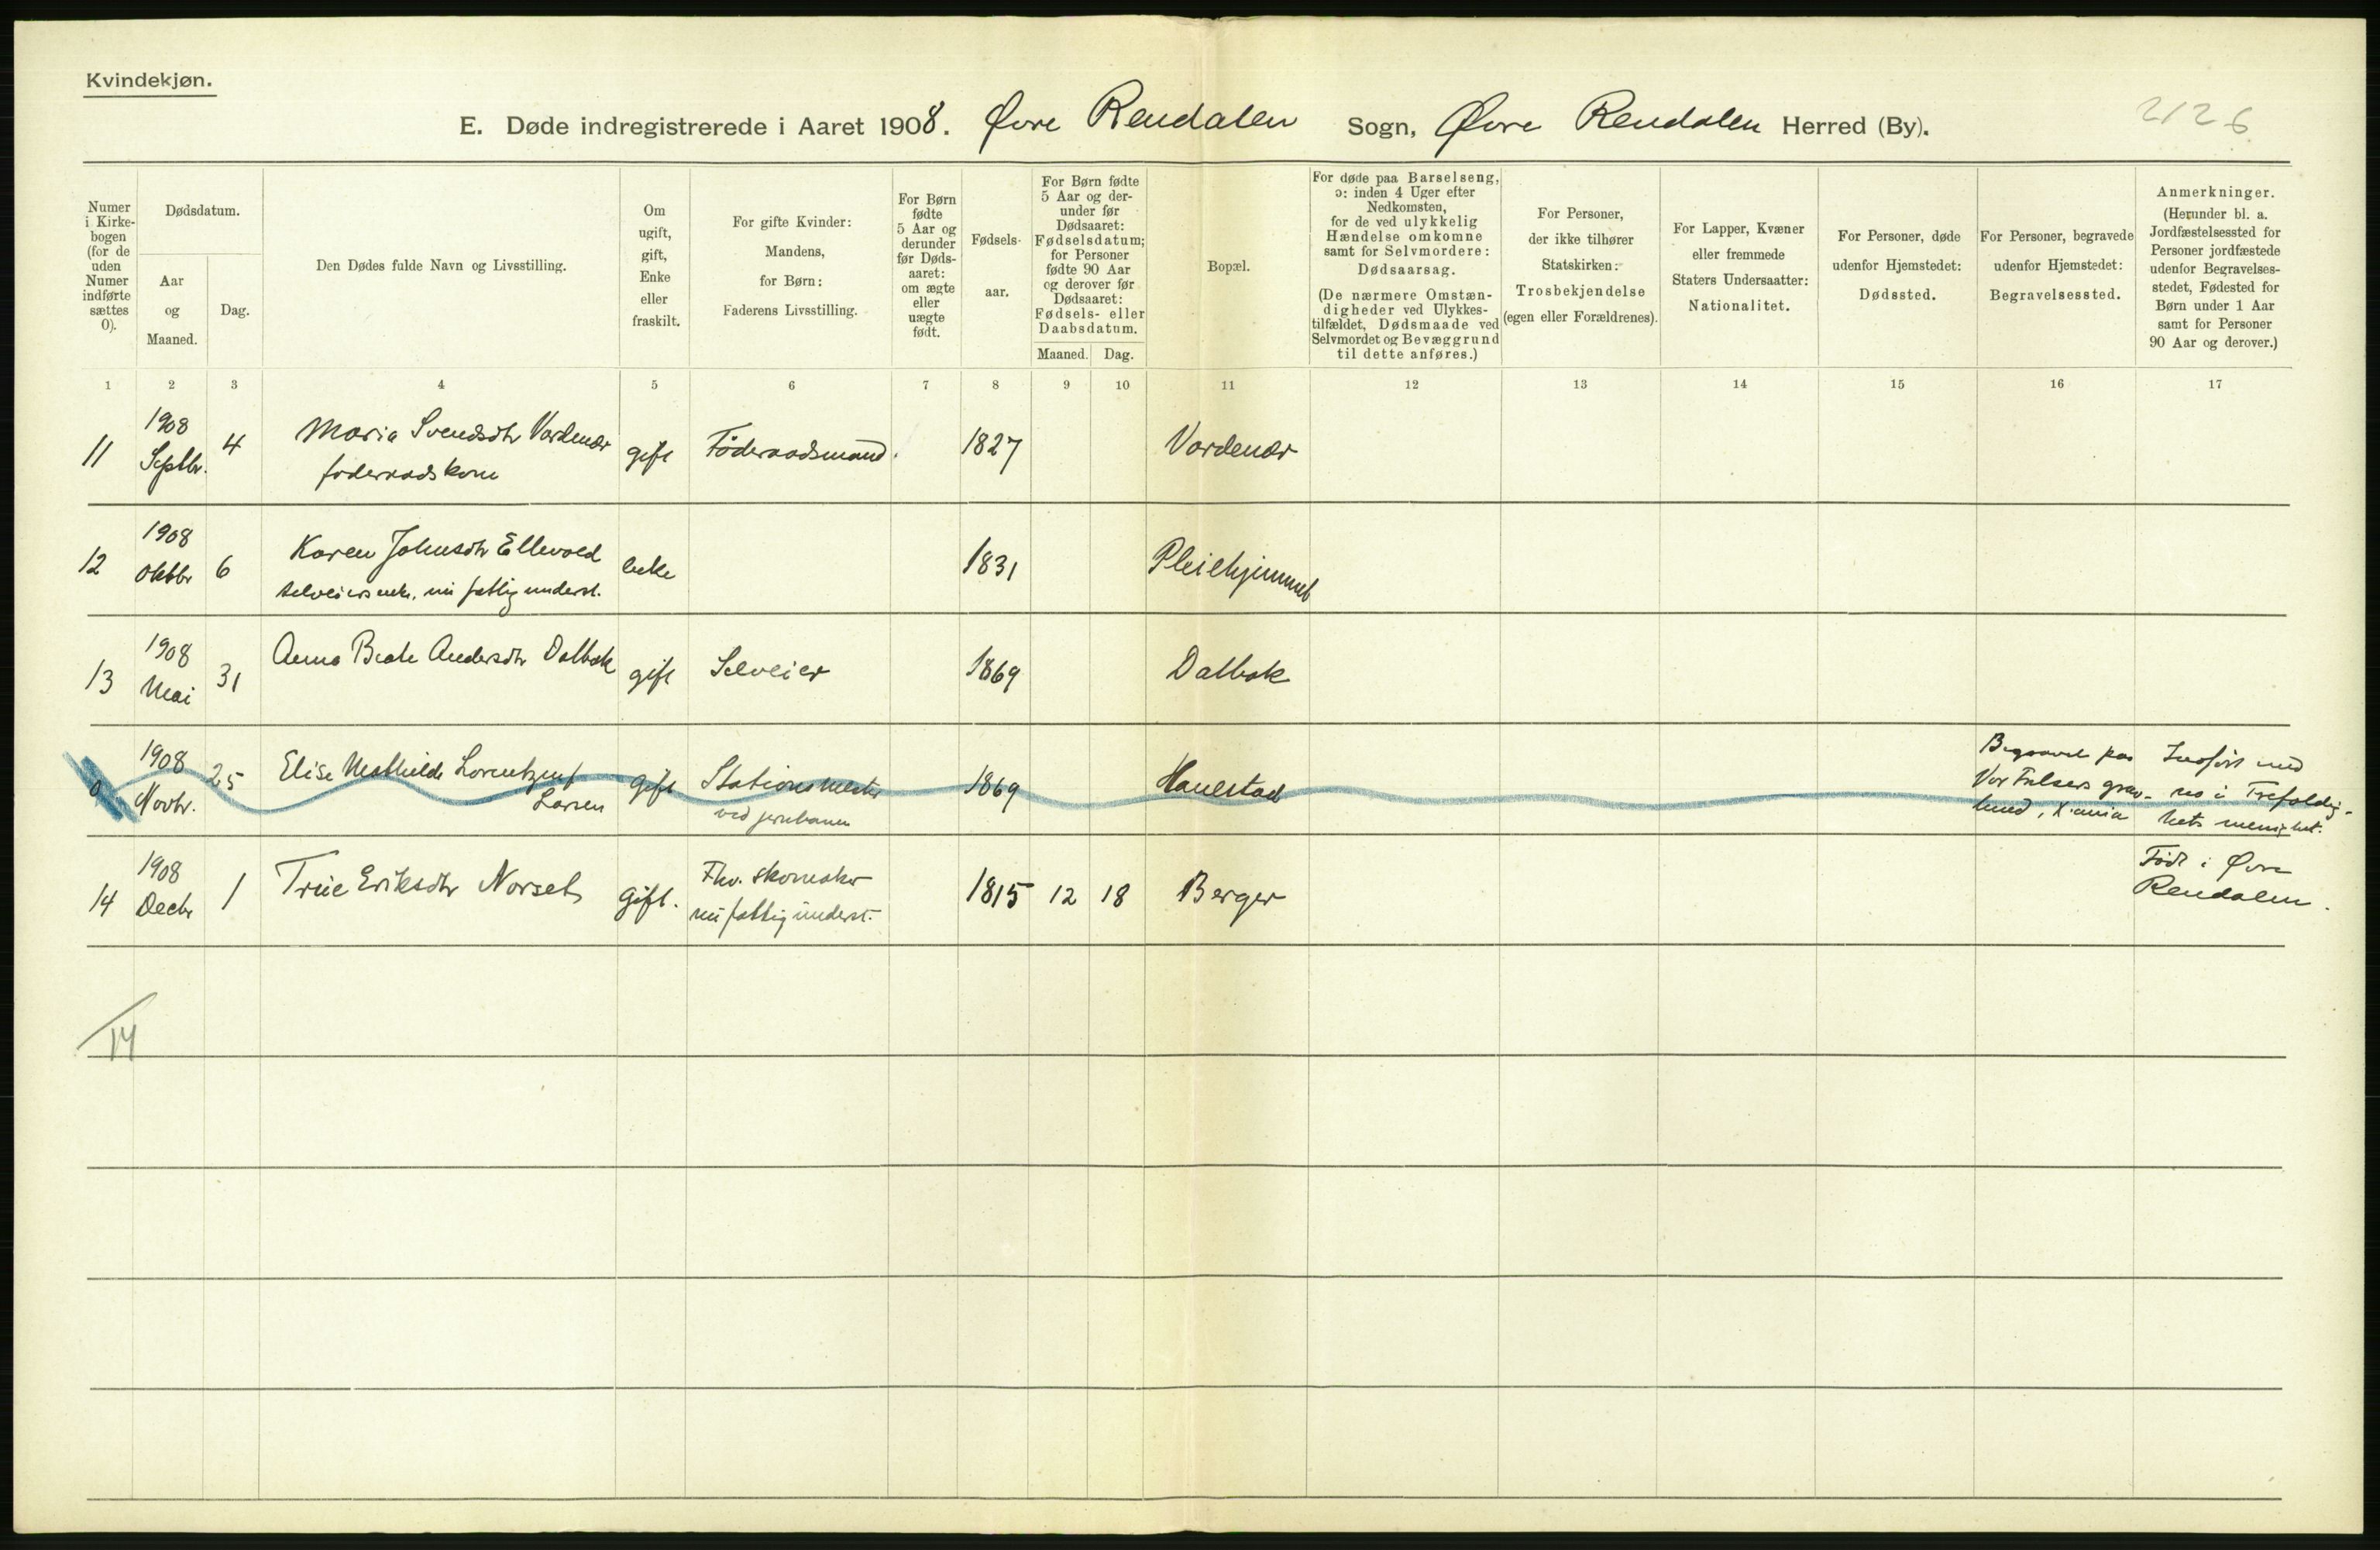 Kvindekjøn.
E. Døde indregistrerede i Aaret 1908. Øvre Rendalen Sogn, Øvre Rendalen Herred (By).
2126
Numer
i Kirke-
bogen
(for de
uden
Numer
indførte
sættes
0).
Dødsdatum.
Aar
og
Maaned.
Dag.
Den Dødes fulde Navn og Livsstilling.
Om
ugift,
gift,
Enke
eller
fraskilt.
For gifte Kvinder:
Mandens,
for Børn:
Faderens Livsstilling.
For Børn
fødte
5 Aar og
derunder
før Døds-
aaret:
om ægte
eller
uægte
født.
Fødsels-
aar.
For Børn fødte
5 Aar og der-
under før
Dødsaaret:
Fødselsdatum;
for Personer
fødte 90 Aar
og derover før
Dødsaaret:
Fødsels- eller
Daabsdatum.
Maaned.
Dag.
Bopæl.
For døde paa Barselseng,
ɔ: inden 4 Uger efter
Nedkomsten,
for de ved ulykkelig
Hændelse omkomne
samt for Selvmordere:
Dødsaarsag.
(De nærmere Omstæn-
digheder ved Ulykkes-
tilfældet, Dødsmaade ved
Selvmordet og Bevæggrund
til dette anføres.)
For Personer,
der ikke tilhører
Statskirken:
Trosbekjendelse
(egen eller Forældrenes).
For Lapper, Kvæner
eller fremmede
Staters Undersaatter:
Nationalitet.
For Personer, døde
udenfor Hjemstedet:
Dødssted.
For Personer, begravede
udenfor Hjemstedet:
Begravelsessted.
Anmerkninger.
(Herunder bl. a.
Jordfæstelsessted for
Personer jordfæstede
udenfor Begravelses-
stedet, Fødested for
Børn under 1 Aar
samt for Personer
90 Aar og derover.)
1 2 3 4 5 6 7 8 9 10 11 12 13 14 15 16 17
11
1908
Septbr.
4
Maria Svendsdtr Vardenær
føderaadskone
gift
Föderaadsmand.
1827
Vardenær
12
1908
Oktbr
6
Karen Johnsdtr Ellevold
selveiersenke, nu fattigunderst.
enke
1831
Pleiehjemmet
13
1908
Mai
31
Anna Beate Andersdtr Dalbak
gift
Selveier
1869
Dalbak
0
1908
Novbr.
25
Elise Mathilde Lorentzen
Larsen
gift
Stationsmester
ved jernbanen
1869
Hanestad
Begravet paa
Vor Frelsers grav-
lund, X.ania
Indført med
no i Trefoldig-
hets menighet.
14
1908
Decbr
1
Trine Eriksdtr Norset
gift.
Fhv. skomaker
nu fattigunderst.
1815
12
18
Berger
Født i Øvre
Rendalen.
14